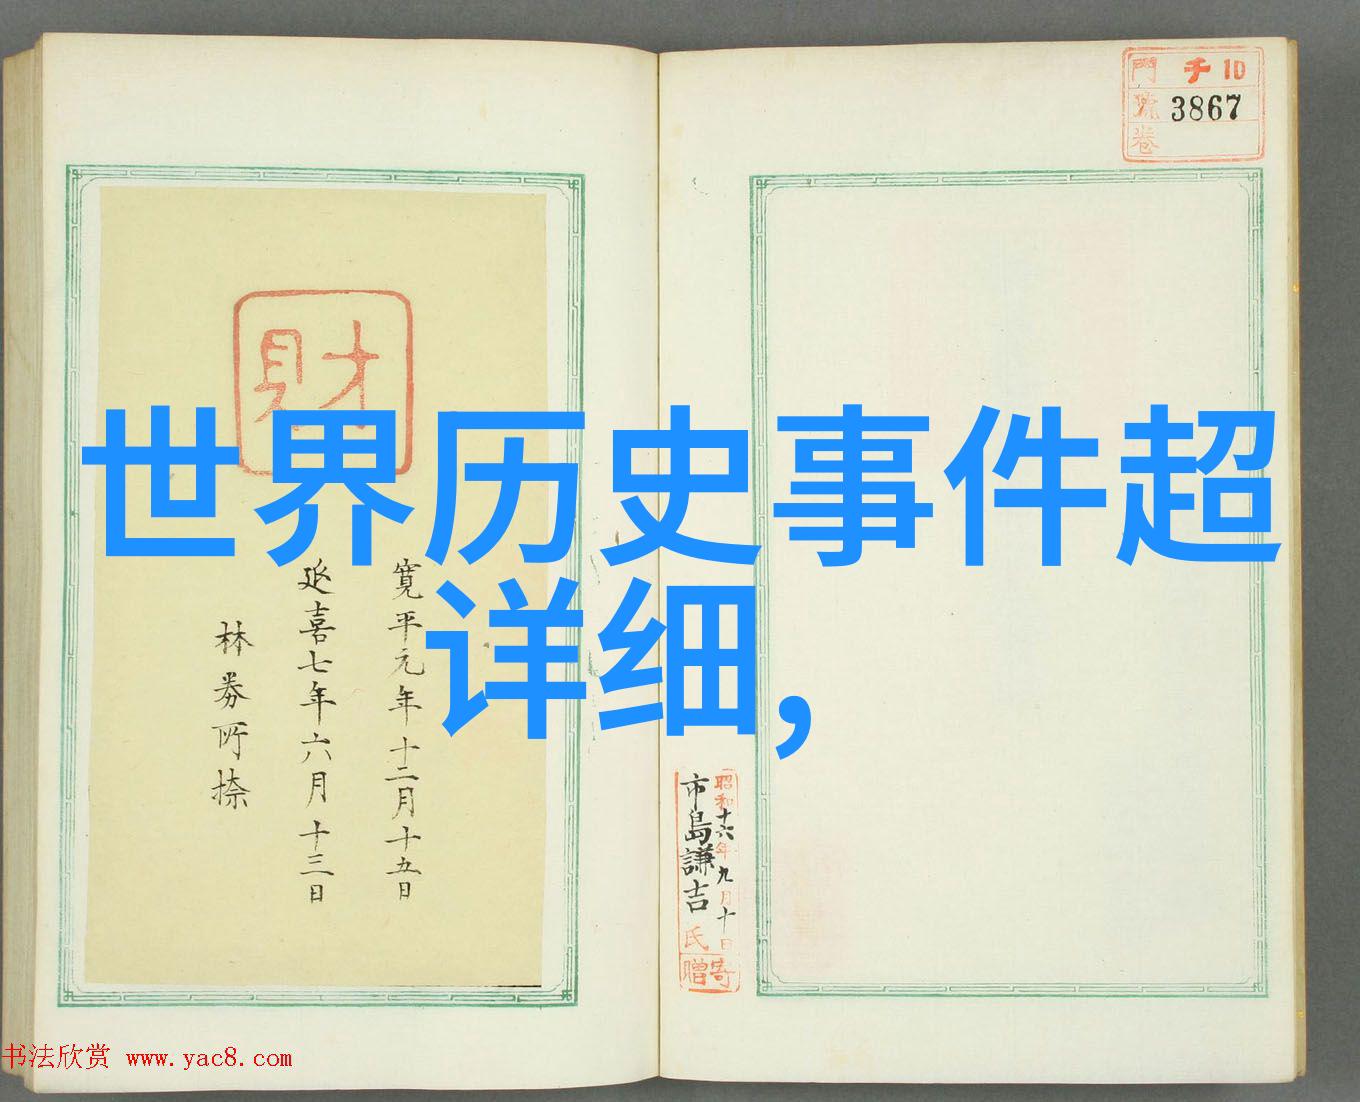 門 千 10
號 3867
卷
財
世界历史事件超
详细,
寛平元年十二月十五日
延喜七年六月十三日
昭和十六年九月十日
市島謙吉氏
寄贈
书法欣赏 www.yac8.com